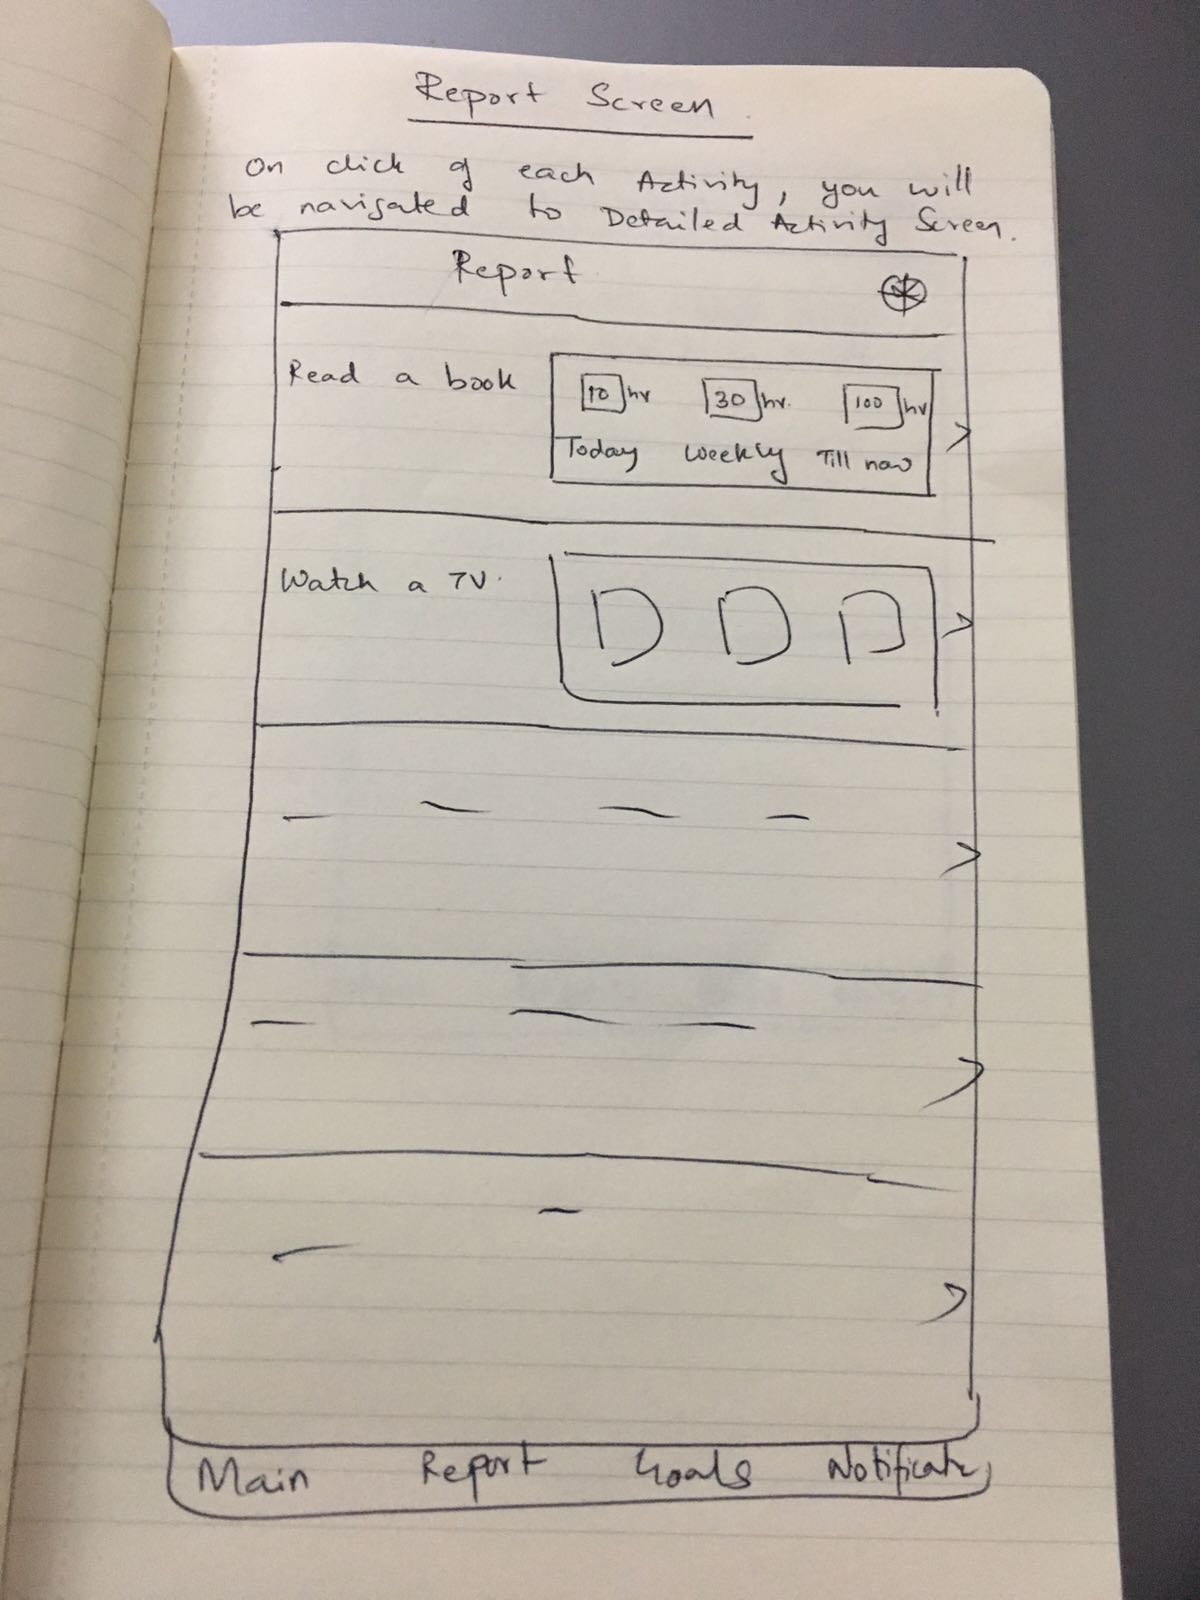 Report Screen
On click of each Activity, you will
be navigated to Detailed Activity Screen.
Report
Read a book
10 hr 30 hr. 100 hr
Today Weekly Till now
Watch a TV.
Main Report Goals Notificatn